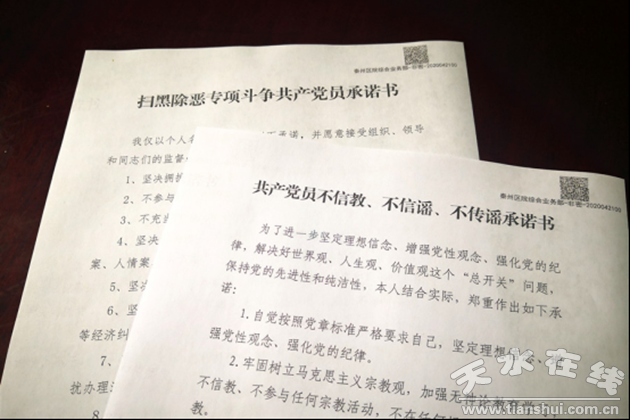 秦州区院综合业务部-彭蓉-20200421
扫黑除恶专项斗争共产党员承诺书
我仅以个人名
承诺,并愿意接受组织、领导
和同志们的监督
1、坚决拥护
2、不参与
3、不充当
4、坚决
案、人情案
5、坚
6、坚
等经济纠
7、
扰办理
8、
秦州区院综合业务部
共产党员不信教、不信谣、不传谣承诺书
为了进一步坚定理想信念、增强党性观念、强化党的纪
律,解决好世界观、人生观、价值观这个“总开关”问题,
保持党的先进性和纯洁性,本人结合实际,郑重作出如下承
诺:
1.自觉按照党章标准严格要求自己,坚定理想信念、
强党性观念、强化党的纪律。
2.牢固树立马克思主义宗教观,加强无神论教育学
不信教、不参与任何宗教活动,不在任何
教。
天水在线
www.tianshui.com.cn